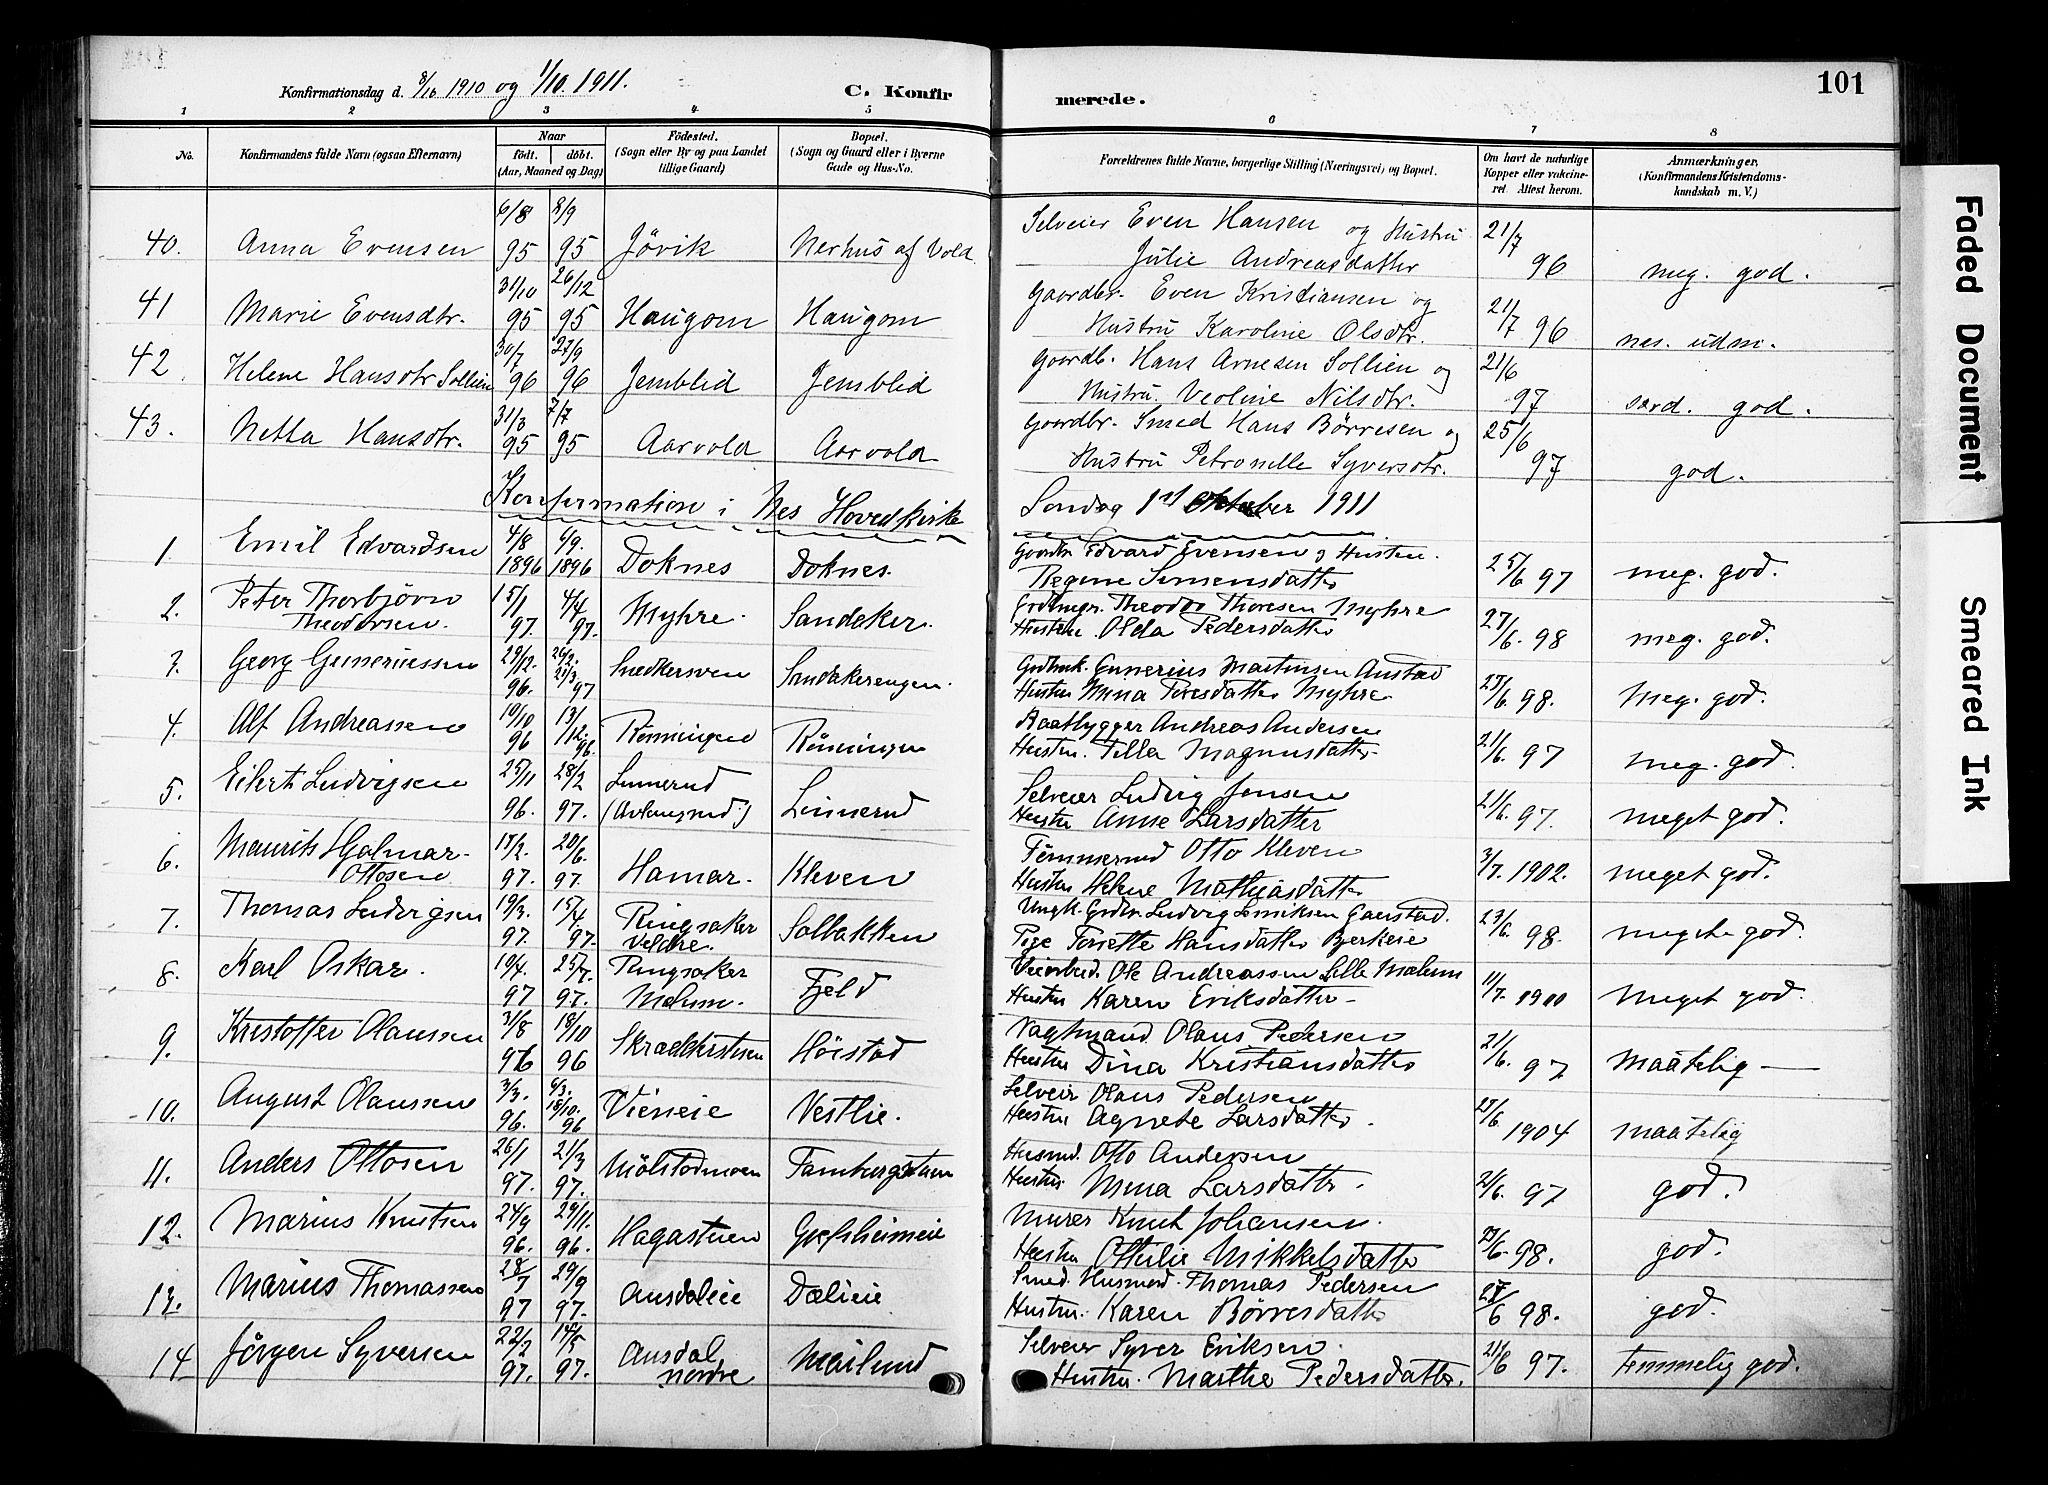 101
Konfirmationsdag d. 8/10 1910 og 1/10 1911.
C. Konfirmerede.
1 2 3 4 5 6 7 8
No. Konfirmandens fulde Navn (ogsaa Efternavn) Naar født. døbt. (Aar, Maaned og Dag) Födested. (Sogn eller By og paa Landet tillige Gaard) Bopæl. (Sogn og Gaard eller i Byerne Gade og Hus-No. Forældrenes fulde Navne, borgerlige Stilling (Næringsvei) og Bopæl. Om havt de naturlige Kopper eller vakcineret. Attest herom. Anmærkninger, (Konfirmandens Kristendomskundskab m. V.)
40. Anna Evensen 6/8 95 8/9 95 Jøvik Nerhus af Vold Selveier Even Hansen og Hustru Julie Andreasdatter 21/7 96 meg. god.
41 Marie Evensdtr. 31/10 95 26/12 95 Haugom Haugom Gaardbr. Even Kristiansen og Hustru Karoline Olsdtr. 21/7 96 udm.
42 Helene Hansdtr Sollien 30/7 96 27/9 96 Jemblid Jemblid Gaardb. Hans Arnesen Sollien og Hustru. Veoline Nilsdtr. 21/6 97 særd. god.
43. Netta Hansdtr. 31/3 95 7/7 95 Aarvold Aarvold Gaardbr. Smed Hans Børresen og Hustru Petronelle Syversdtr. 25/6 97 god.
Konfirmation i Nes Hovedkirke Søndag 1st Oktober 1911
1. Emil Edvardsen 4/8 1896 6/9. 1896 Doknes Doknes. Gaardbr Edvard Evensen og Hustru. Regine Simensdatter 25/6 97 meg. god.
2. Peter Thorbjørn Theodorsen. 15/1 97. 4/4 97. Myhre. Sandeker. Theodor Thoresen Myhre Hustru. Olda Pedersdatter 27/6. 98 meg. god.
3. Georg Gunneriussen 29/12. 96. 97 Snedkersven Sandakerengen. Gunnerius Martinsen Anstad Hustru Mina Myhre 25/6. 98. Meg. god.
4. Alf Andreassen 10/10 96 13/12. 96. Rønningen Rønningen Baatbygger Andreas Andersen Hustru. Tilla Magnusdatter 21/6. 97 meg. god.
5. Eilert Ludvigsen 25/11 96. 28/2 97. Linnerud Linnerud Selveier Ludvig Jensen Hustru Anne Larsdatter 21/6. 97. meget god.
6. Maurits Hjalmar Ottosen 17/2. 97. 20/6. 97. Hamar. Kleven Tømmermd Otto Kleven Hustru Helene Mathiasdatter 3/7. 1902. meget god.
7. Thomas Ludvigsen 19/3. 97. 15/4 97. Ringsaker Veldre. Solbakken Ungk. Grdbr. Ludvig Gaarstad. Pige Hansdatter Bjerkeie 23/6. 98. meget god.
8. Karl Oskar. 10/7. 97 25/7. 97. Ringsaker Mælum. Fjeld Veiarbed. Ole Andreassen Lille Mælum Hustru Karen Eriksdatter 11/7. 1900 meget god.
9. Kristoffer Olaussen 3/8 96 18/10 96 Høistad Vagtmand. Olaus Pedersen Hustru Dina Kristiansdatter 21/6. 97 maatelig
10. August Olaussen 3/3. 96. 6/3. 18/10. 96 Vieneie Vestlie. Selveier Olaus Pedersen Hustru Agnete Larsdatter. 27/6. 1904 maatelig
11. Anders Ottosen 26/1 97. 21/3 97. Mølstadmoen Tamburgstuen Husmd. Otto Andersen Hustru Mina Larsdatter. 21/6. 97 god.
12. Marius Knutsen 24/9 96. 29/11. 96. Hagastuen Gjefsheimeie Murer Knut Johansen. Hustru Ottilie Mikkelsdatter 29/6. 98. god.
13. Marius Thomassen 28/7 97 29/9 97. Ausdaleie Dælieie Smed. Husmd. Thomas Pedersen Hustru. Karen Børresdatter 27/6 98. god.
14 Jørgen Syversen 22/2 97. 14/5 97. Ausdal nordre Mailund Selveier Syver Eriksen. Hustru. Marthe Pedersdatter. 21/6 97. temmelig god.
Faded Document
Smeared Ink